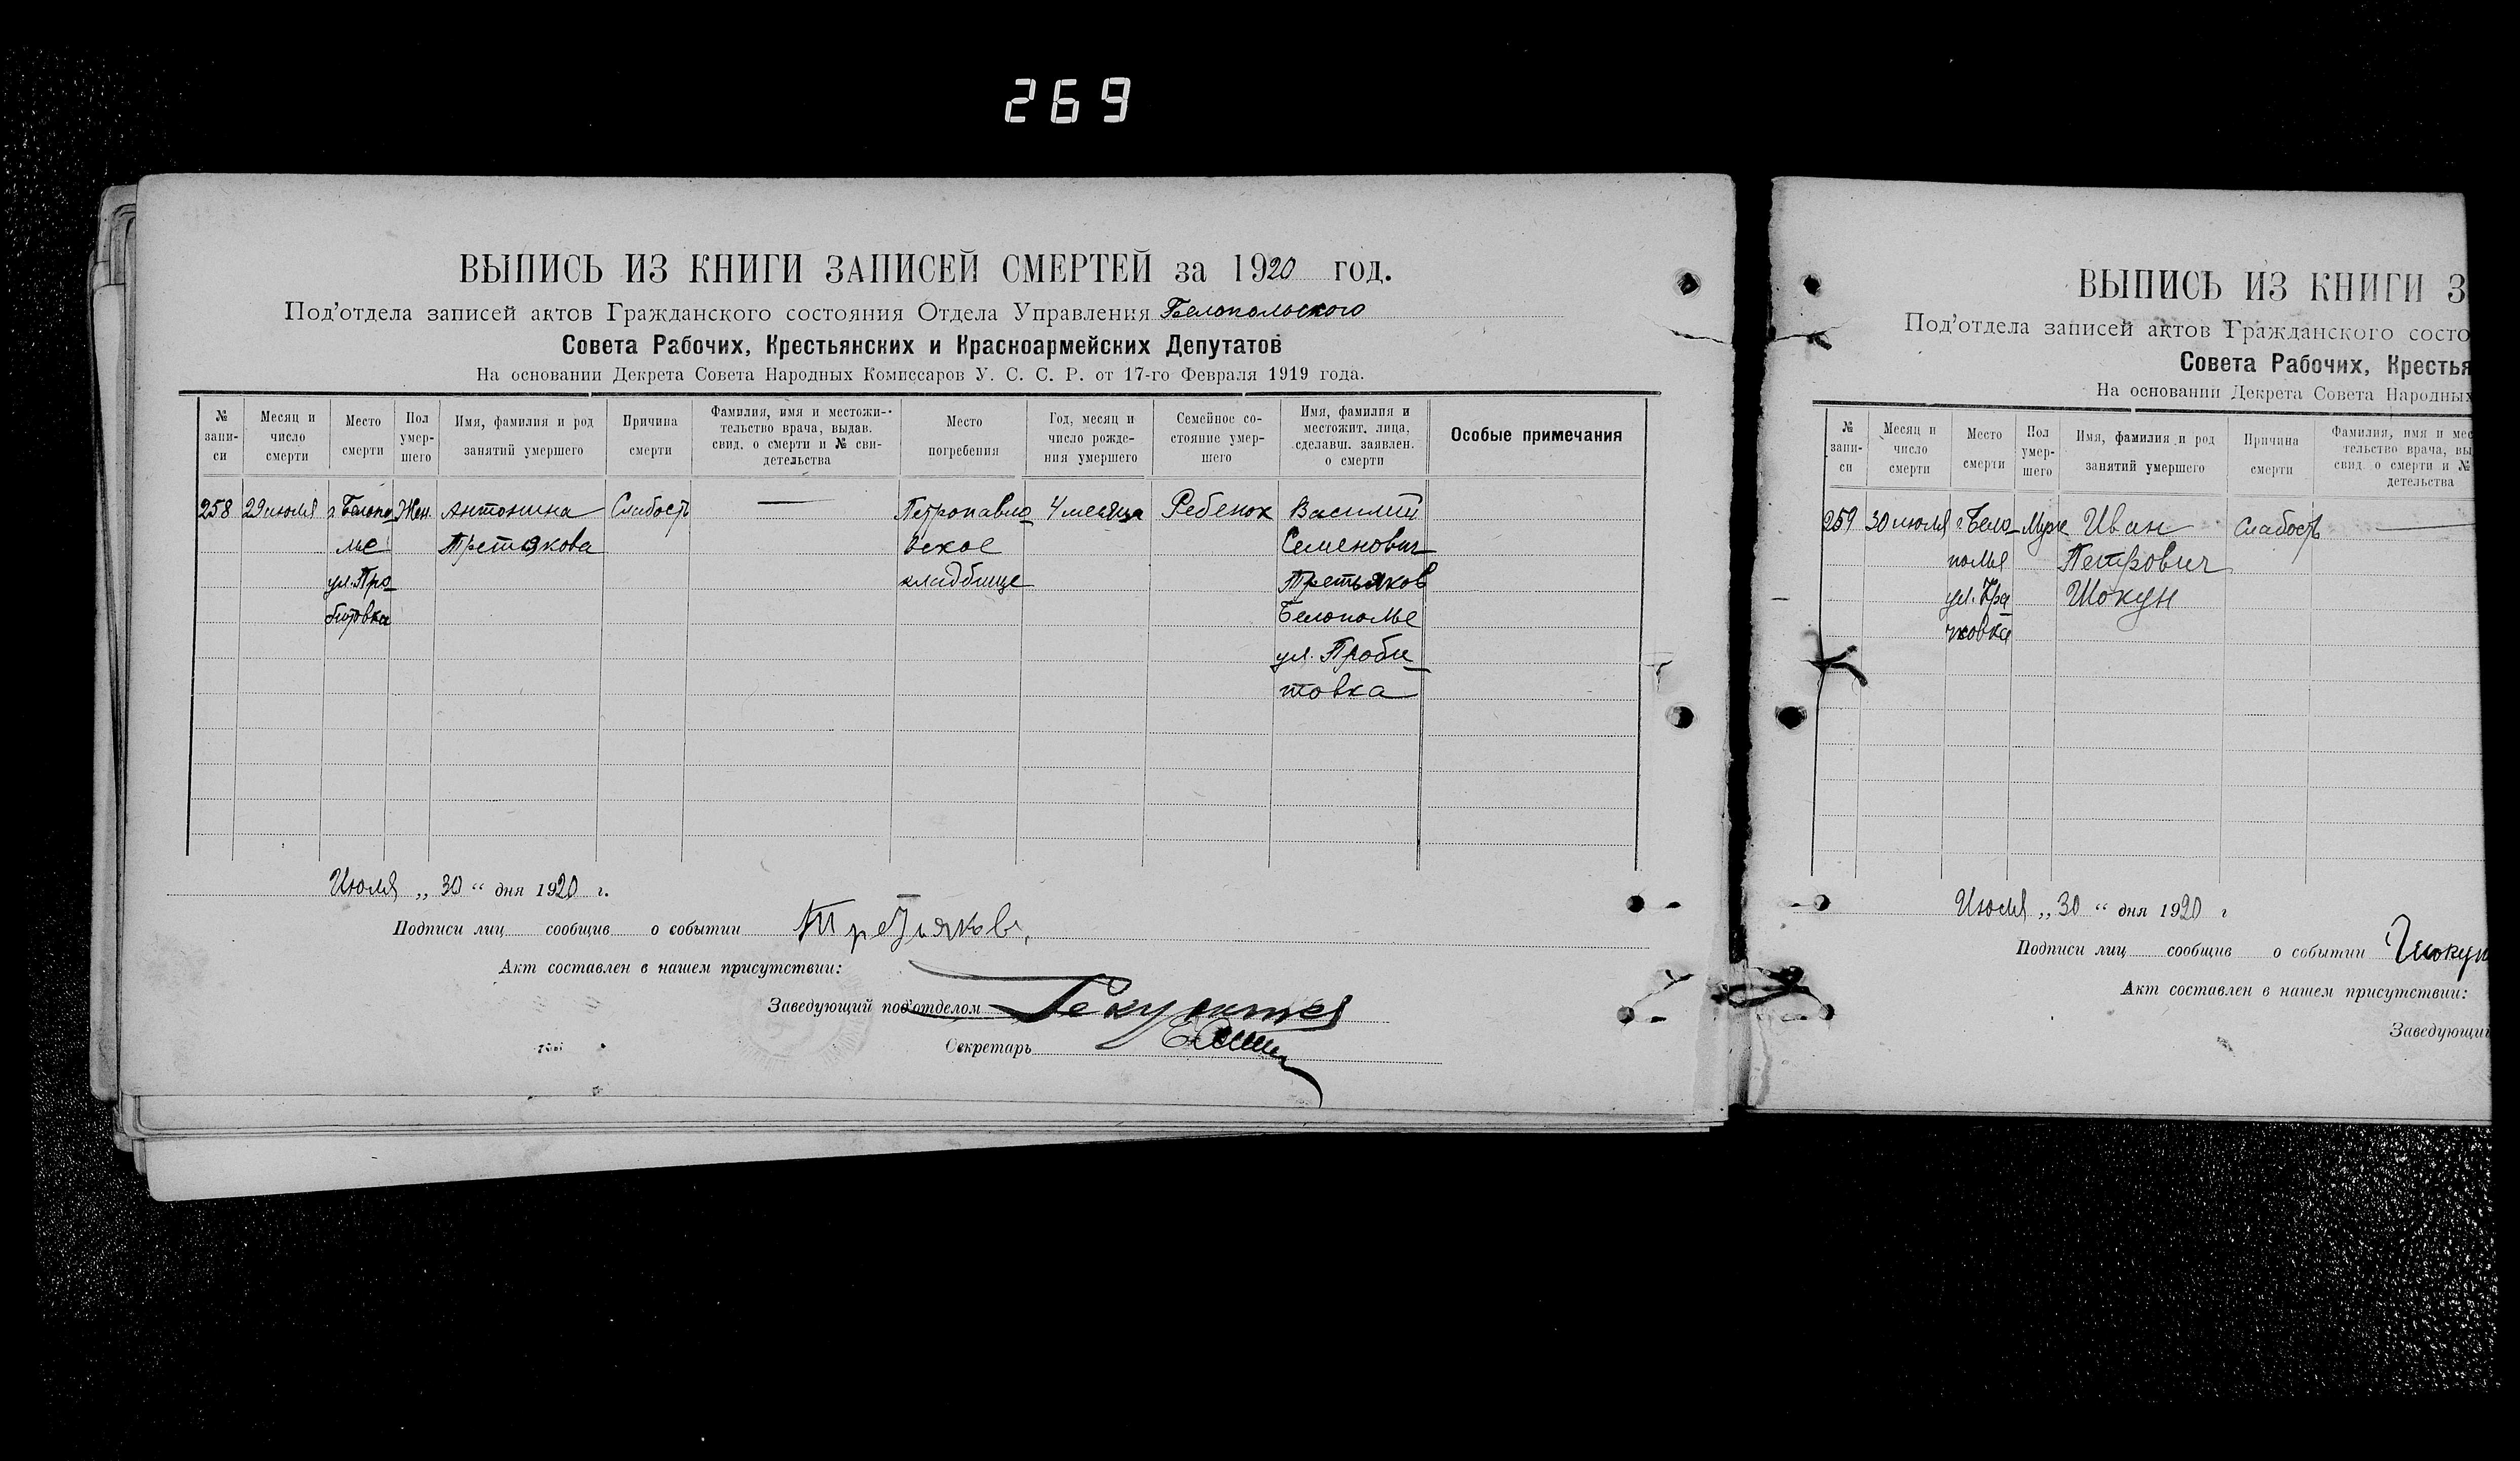 269
ВЫПИСЬ ИЗ КНИГИ ЗАПИСЕЙ СМЕРТЕЙ за 1920 год.
Под'отдела записей актов Гражданского состояния Отдела Управления Белопольского
Совета Рабочих, Крестьянских и Красноармейских Депутатов
На основании Декрета Совета Народных Комиссаров У. С. С. Р. от 17-го Февраля 1919 года.
№ запи- си
Месяц и число смерти
Место смерти
Пол умер- шего
Имя, фамилия и род занятий умершего
Причина смерти
Фамилия, имя и местожи- тельство врача, выдав. свид. о смерти и № сви- детельства
Место погребения
Год, месяц и число рожде- ния умершего
Семейное со- стояние умер- шего
Имя, фамилия и местожит. лица, сделавш. заявлен. о смерти
Особые примечания
258 29 июля г. Белопо Жен. Антонина Слабость — Петропавло 4 месяца Ребенок Василий
лье Третякова вское Семенович
ул. Про кладбище Третьяков
битовка Белополье
ул. Проби
товка
Июля „ 30 “ дня 1920 г.
Подписи лиц сообщив о событии Третьяков
Акт составлен в нашем присутствии:
Заведующий под'отделом
Секретарь
ВЫПИСЬ ИЗ КНИГИ З
Под'отдела записей актов Гражданского состо
Совета Рабочих, Крестья
На основании Декрета Совета Народных
№ запи- си
Месяц и число смерти
Место смерти
Пол умер- шего
Имя, фамилия и род занятий умершего
Причина смерти
Фамилия, имя и мес тельство врача, вы свид. о смерти и № детельства
259 30 июля г. Бело Муж Иван Слабость —
полья Петрович
ул. Кра Шокун
чковка
Июля „ 30 “ дня 1920 г
Подписи лиц сообщив о событии Шокун
Акт составлен в нашем присутствии:
Заведующи